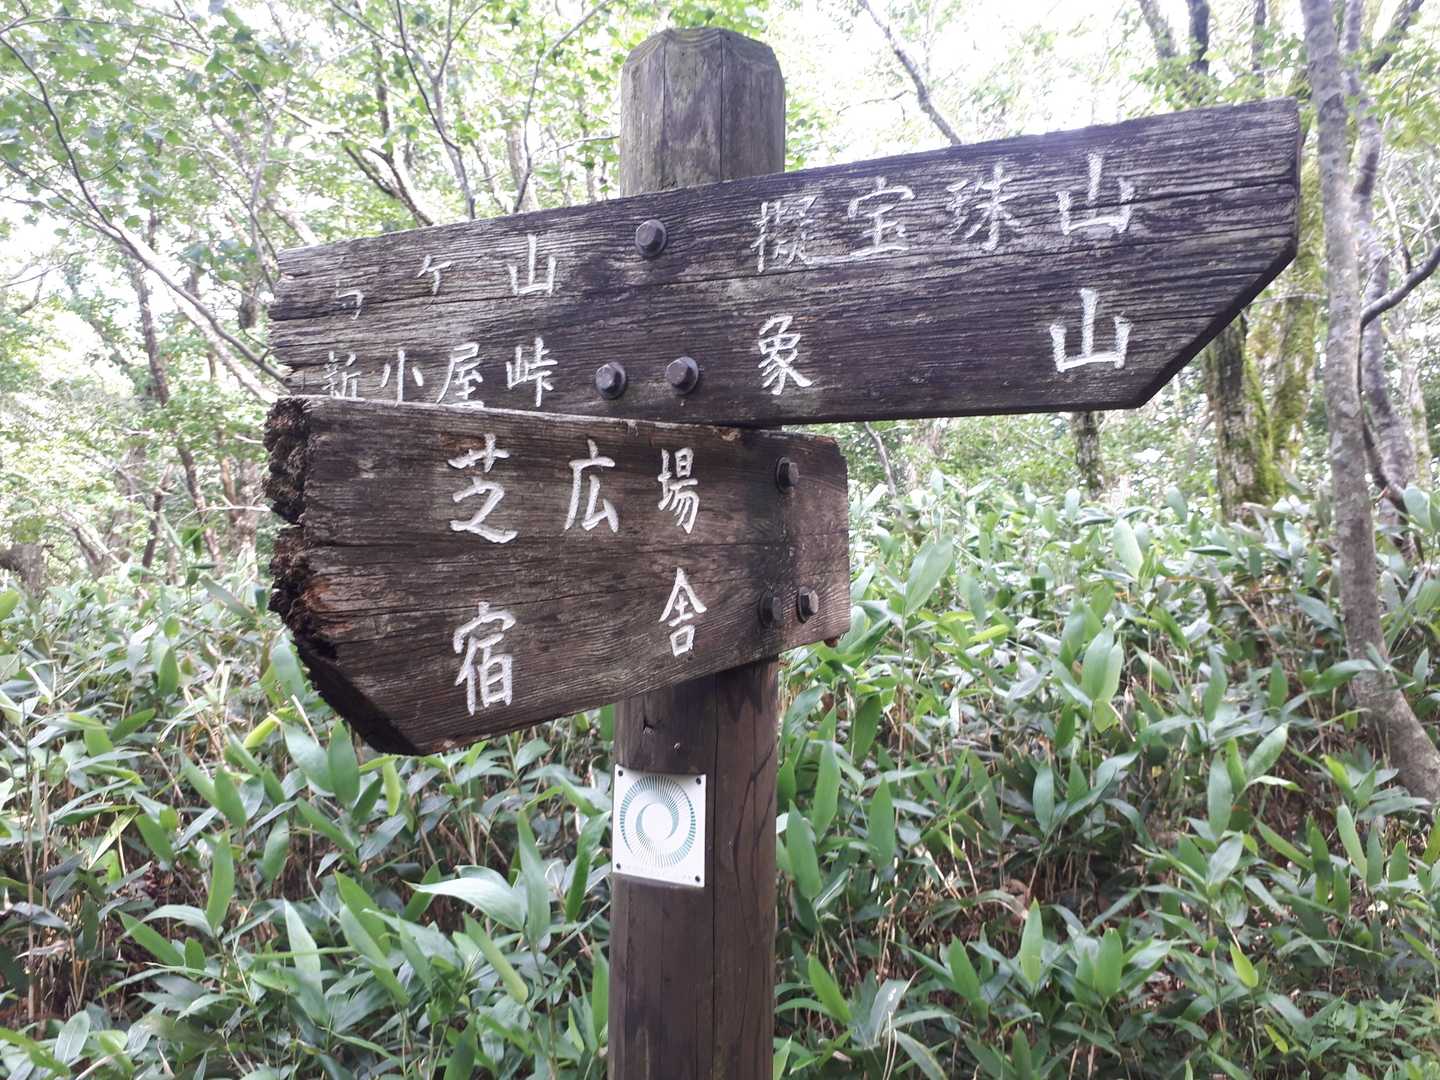 ケ山 擬宝珠山
新小屋峠 象山
芝広場
宿舎